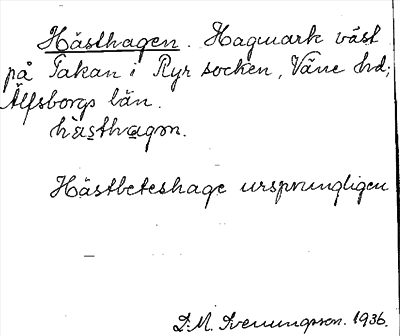 Hästhagen. Hagmark väst
på Takan i Ryr socken, Väne hd;
Älfsborgs län.
hästhagən.
Hästbeteshage ursprungligen
D. M. Svenungsson. 1936.